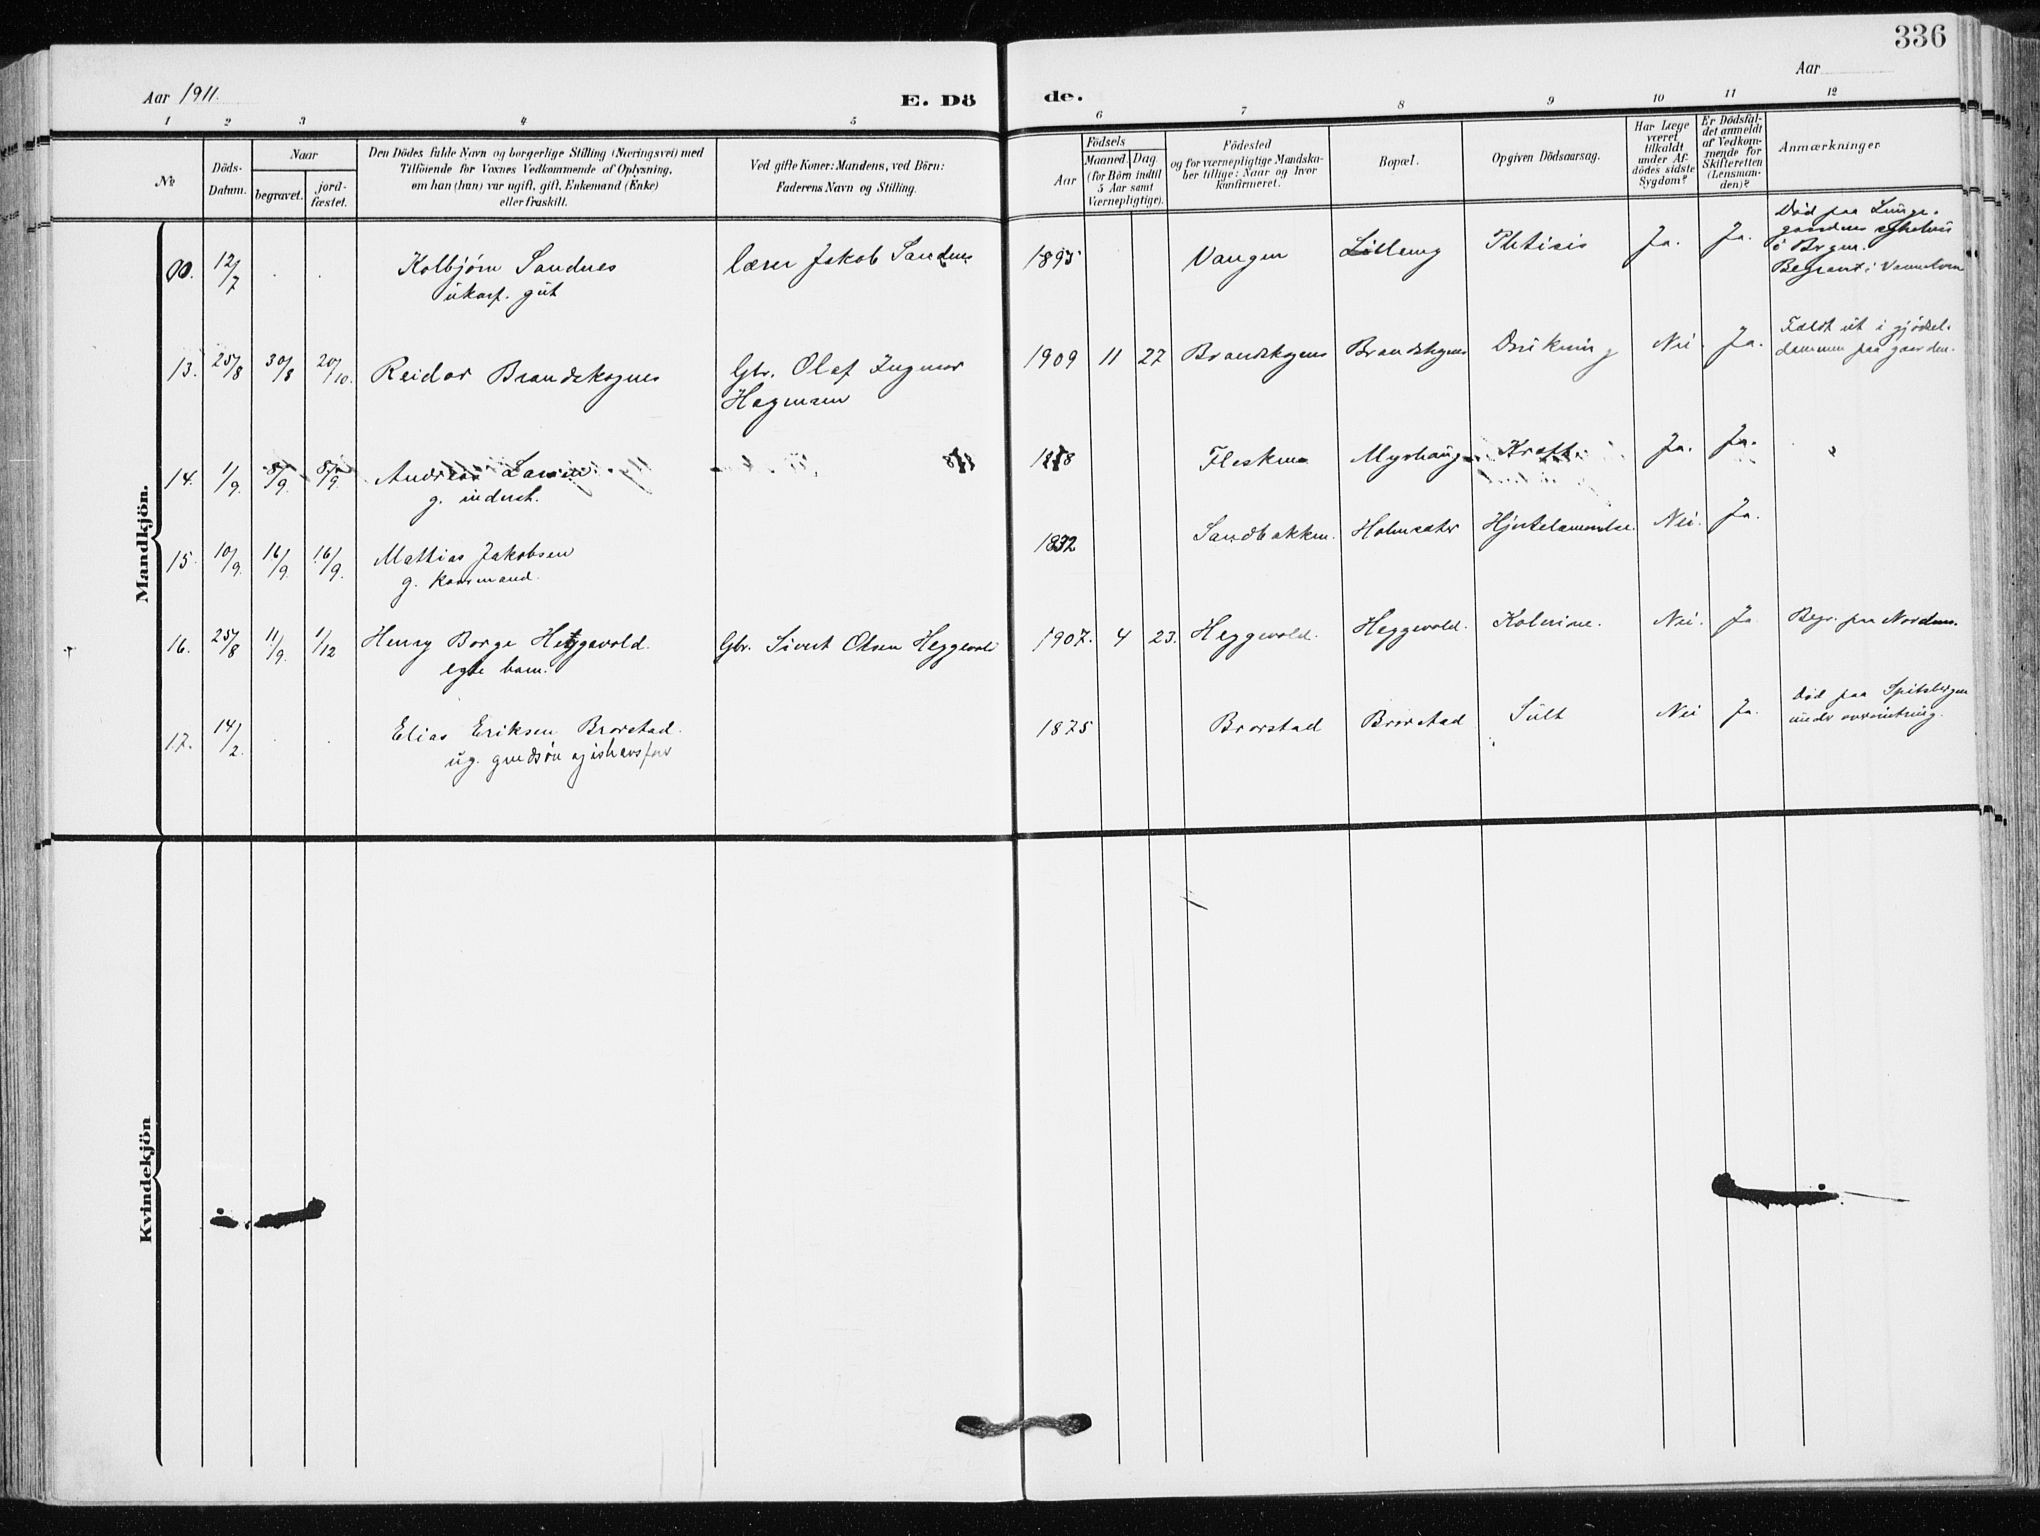 336
Aar 1911.
E. Dö
de.
Aar
1 2 3 4 5 6 7 8 9 10 11 12
№
Döds-
Datum.
Naar
begravet.
jord-
fæstet.
Den Dödes fulde Navn og borgerlige Stilling (Næringsvei) med
Tilföiende for Voxnes Vedkommende af Oplysning,
om han (hun) var ugift, gift, Enkemand (Enke)
eller fraskilt.
Ved gifte Koner: Mandens, ved Börn:
Faderens Navn og Stilling.
Födsels
Aar
Maaned. Dag.
(for Börn indtil
5 Aar samt
Værnepligtige).
Födested
og for værnepligtige Mandska-
ber tillige: Naar og hvor
konfirmeret.
Bopæl.
Opgiven Dödsaarsag.
Har Læge
været
tilkaldt
under Af-
dödes sidste
Sygdom?
Er Dödsfal-
det anmeldt
af Vedkom-
mende for
Skifteretten
(Lensman-
den)?
Anmærkninger
Mandkjön.
00. 12/7 Kolbjørn Sandnes lærer Jakob Sandnes 1895 Vangen Ja. Ja. Død paa Lunge-
ukonf. gut
gaardens sykehus
i Bergen.
13. 25/8 30/8 20/10. Reidar Brandskognes Gbr. Olaf Ingmar 1909 11 27 Brandskognes Brandskognes Drukning Nei Ja. Faldt ut i gjødsel-
Hagensen
dammen paa gaarden.
14. 1/9. 8/9. 8/9 Andreas Larsen Myrhaug Ja. Ja.
g. inderst.
15. 10/9. 16/9 16/9. Mattias Jakobsen 1832 Sandbakken. Holmsæter Hjertelammelse. Nei. Ja.
g. kaarmand.
16. 25/8 11/9. 1/12 Henry Borge Heggevold. Gbr. Sivert Olsen Heggevold 1907. 4 23. Heggevold. Heggevold. Kolerine. Nei. Ja Begr. paa Nordnes.
egte barn.
17. 14/2. Elias Eriksen Brorstad. 1875 Brorstad Brorstad Sult Nei Ja. Død paa Spitsbergen
ug. grdsøn og ishavsfar
under overvintring.
Kvindekjön